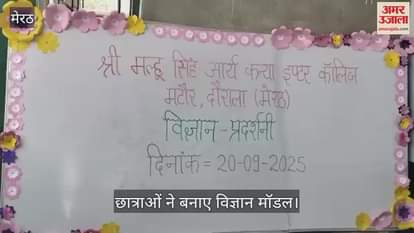 मेरठ
अमर उजाला
amarujala.com
श्री मल्हू सिंह आर्य कन्या इण्टर कॉलिज
मटौर, दौराला (मेरठ)
विज्ञान - प्रदर्शनी
दिनांक = 20-09-2025
छात्राओं ने बनाए विज्ञान मॉडल।